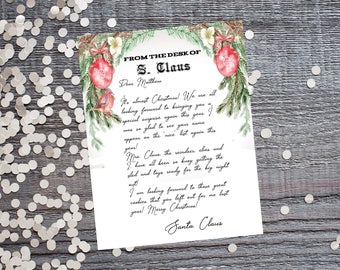 FROM THE DESK OF
S. Claus
Dear Matthew
It's almost Christmas! We are all
looking forward to bringing you a
special surprise again this year. I
was so glad to see your name
appear on the nice list again this
year!
Mrs. Claus, the reindeer, elves and
I have all been so busy getting the
sled and toys ready for the big night
out!
I am looking forward to those great
cookies that you left out for me last
year! Merry Christmas!
Santa Claus